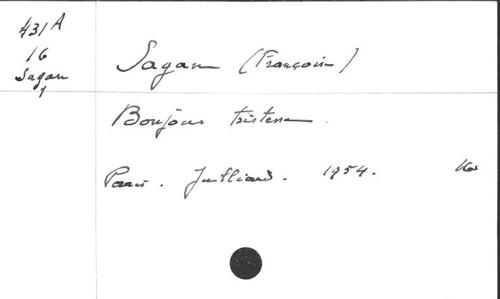 431A
16
Sagan
1
Sagan (Françoise)
Bonjour tristesse.
Paris. Julliard. 1954.